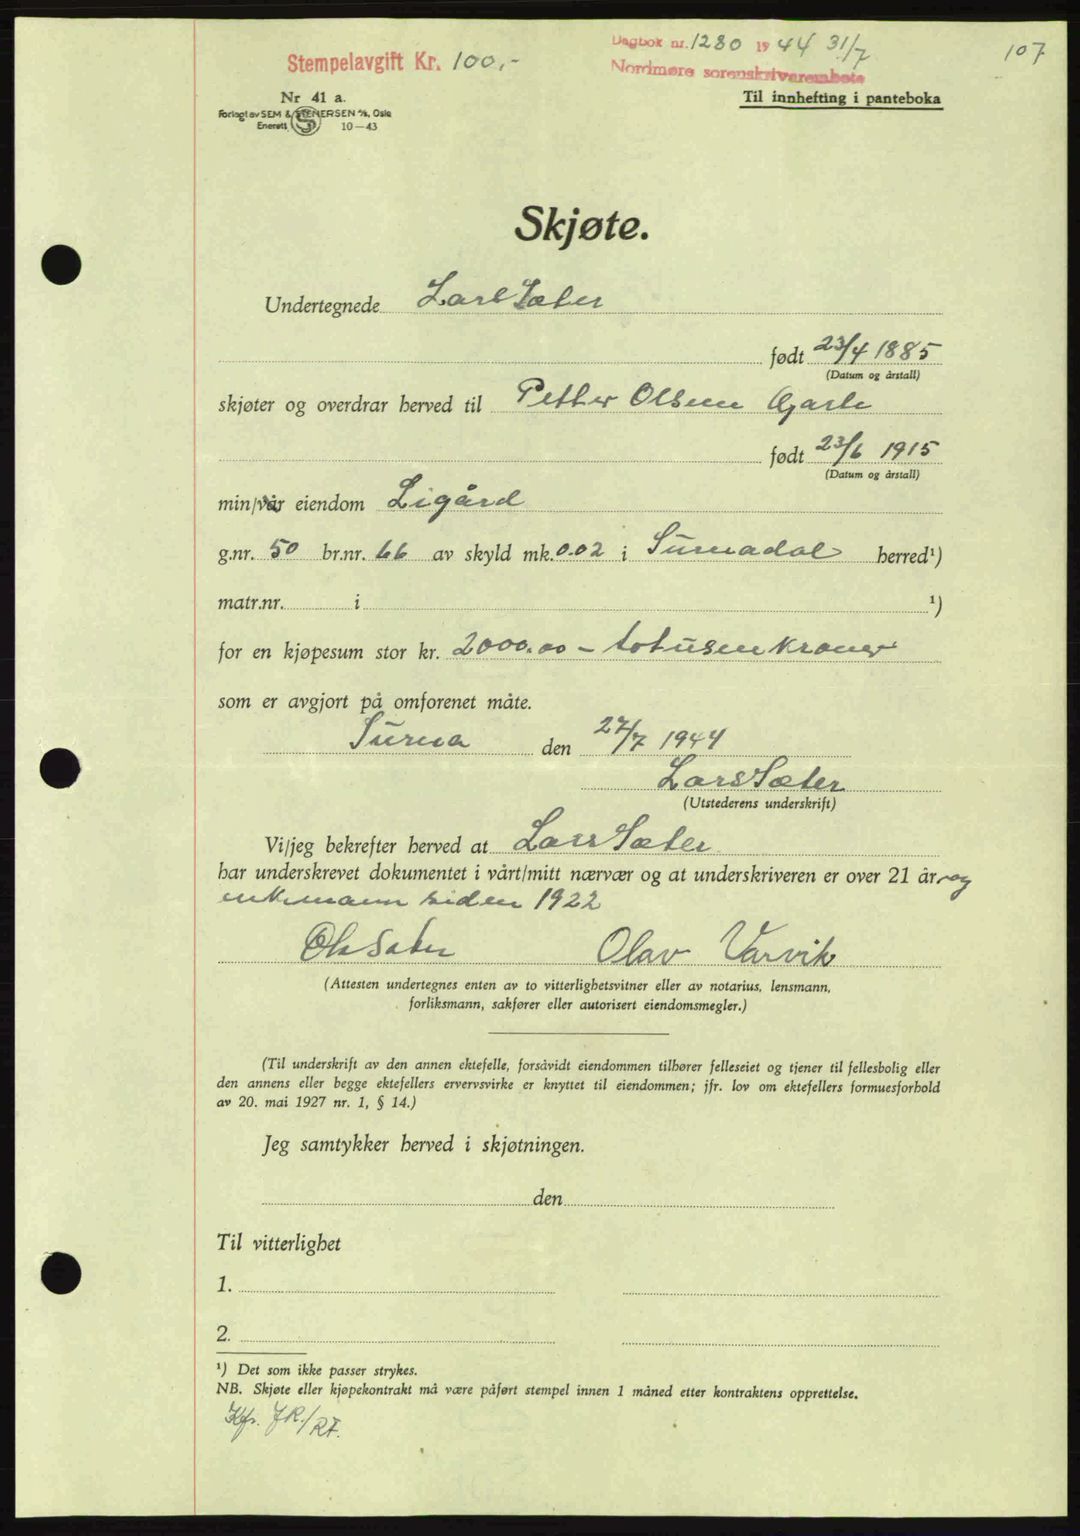 Dagbok nr. 1280 1944 31/7
107
Stempelavgift Kr. 100,-
Nordmøre sorenskriverembete
Nr 41 a.
Til innhefting i panteboka
Forlagt av SEM & STENERSEN A/S, Oslo
Enerett 10—43
Skjøte.
Undertegnede Lars Sæter
født 23/4 1885
(Datum og årstall)
skjøter og overdrar herved til Petter Olsen
født 23/6 1915
(Datum og årstall)
min/vår eiendom Ligård
g.nr. 50 br.nr. 66 av skyld mk. 0.02 i Surnadal herred¹)
matr.nr. i ¹)
for en kjøpesum stor kr. 2000.00 – totusen kroner
som er avgjort på omforenet måte.
Surna den 27/7 1944
Lars Sæter
(Utstederens underskrift)
Vi/jeg bekrefter herved at Lars Sæter
har underskrevet dokumentet i vårt/mitt nærvær og at underskriveren er over 21 år og
enkemann siden 1922
Ola Sæter Olav Varvik
(Attesten undertegnes enten av to vitterlighetsvitner eller av notarius, lensmann,
forliksmann, sakfører eller autorisert eiendomsmegler.)
(Til underskrift av den annen ektefelle, forsåvidt eiendommen tilhører felleseiet og tjener til fellesbolig eller
den annens eller begge ektefellers ervervsvirke er knyttet til eiendommen; jfr. lov om ektefellers formuesforhold
av 20. mai 1927 nr. 1, § 14.)
Jeg samtykker herved i skjøtningen.
den
Til vitterlighet
1.
2.
¹) Det som ikke passer strykes.
NB. Skjøte eller kjøpekontrakt må være påført stempel innen 1 måned etter kontraktens opprettelse.
Kfr. JR./RF.